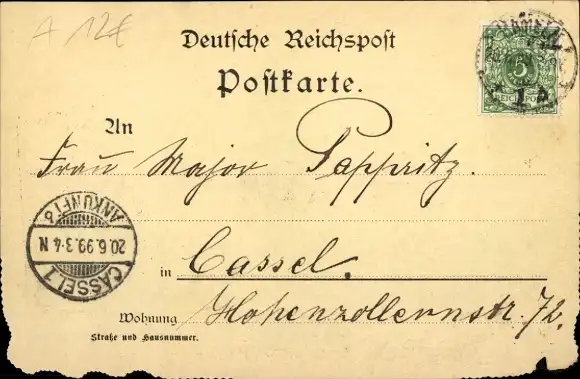 A 12€
Deutsche Reichspost
Postkarte.
5
REICHSPOST
1 A
An
Frau Major Pappritz.
CASSEL 1
20.6.99.3-4 N
ANKUNFT b
in Cassel.
Wohnung Hohenzollernstr. 72.
Straße und Hausnummer.